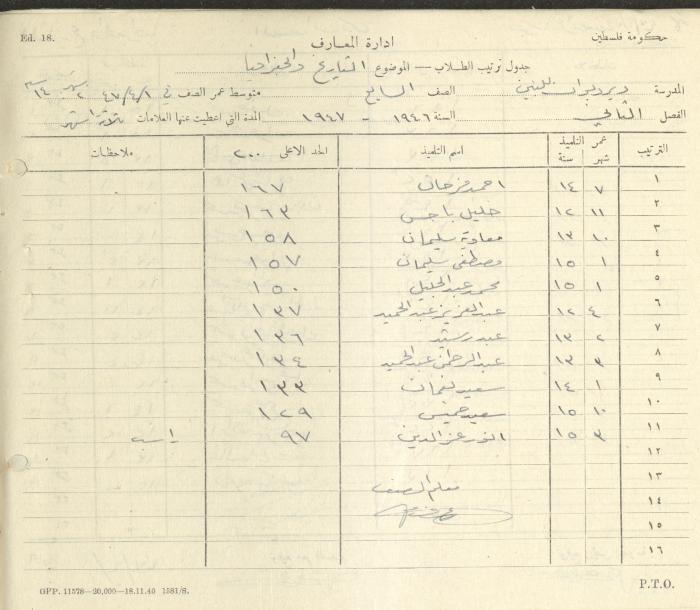 Ed. 18.
حكومة فلسطين
ادارة المعارف
جدول ترتيب الطلاب — الموضوع التاريخ والجغرافيا
المدرسة ديردبوان للبنين الصف السابع متوسط عمر الصف في ٤٧/٤/١ ٢ شهر ١٤ سنة
الفصل الثاني السنة ١٩٤٦ - ١٩٤٧ المدة التي اعطيت عنها العلامات ثلاثة اشهر
الترتيب عمر التلميذ شهر سنة اسم التلميذ الحد الاعلى ٢٠٠ ملاحظات
١ ٧ ١٤ احمد فرحان ١٦٧
٢ ١١ ١٢ خليل باجس ١٦٣
٣ ١٠ ١٣ معاوية سليمان ١٥٨
٤ ١ ١٥ مصطفى سليمان ١٥٧
٥ ١ ١٥ محمد عبد الجليل ١٥٠
٦ ٤ ١٢ عبد العزيز عبد الحميد ١٣٧
٧ ٢ ١٣ عبد رشيد ١٣٦
٨ ٣ ١٣ عبد الرحمن عبد الحميد ١٣٤
٩ ١ ١٤ سعيد نعمان ١٣٣
١٠ ١٠ ١٥ سعيد خميس ١٢٩
١١ ٣ ١٥ انور عز الدين ٩٧ راسب
١٢
١٣ معلم الصف
١٤
١٥
١٦
GPP. 11578—20,000—18.11.40 1581/S.
P.T.O.